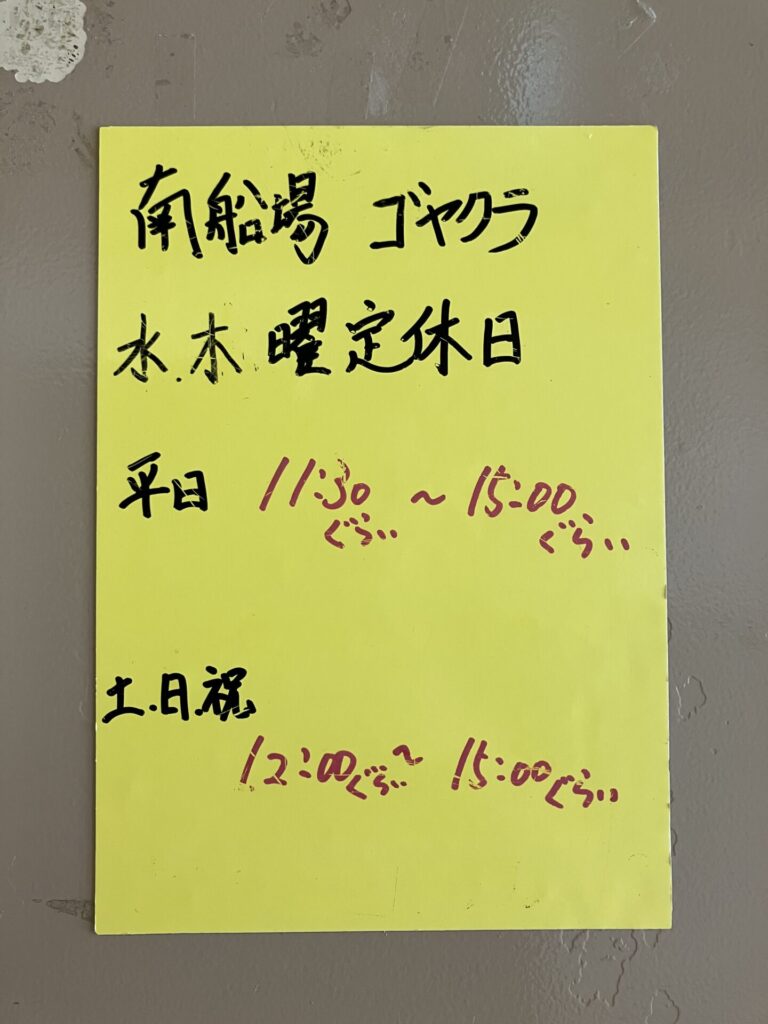 南船場 ゴヤクラ
水.木 曜定休日
平日 11:30ぐらい ~ 15:00ぐらい
土.日.祝
12:00ぐらい~ 15:00ぐらい